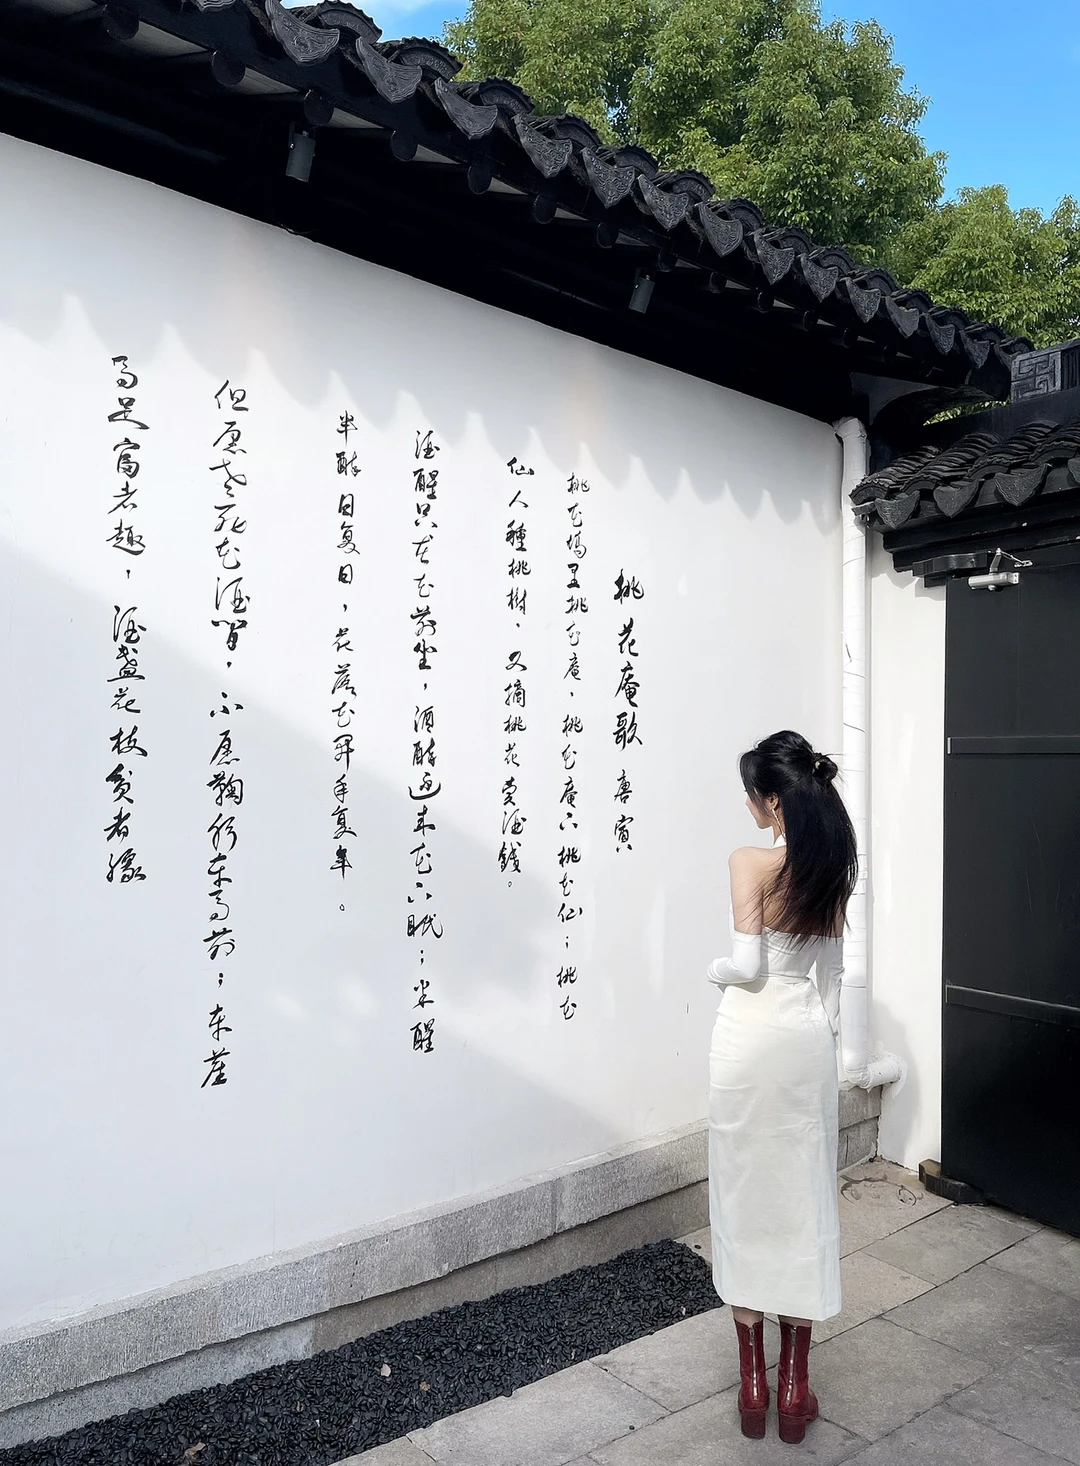 桃花庵歌 唐寅
桃花塢里桃花庵，桃花庵下桃花仙；桃花
仙人種桃樹，又摘桃花賣酒錢。
酒醒只在花前坐，酒醉还来花下眠；半醒
半醉日复日，花落花开年复年。
但愿老死花酒间，不愿鞠躬车马前；车尘
马足富者趣，酒盏花枝贫者缘